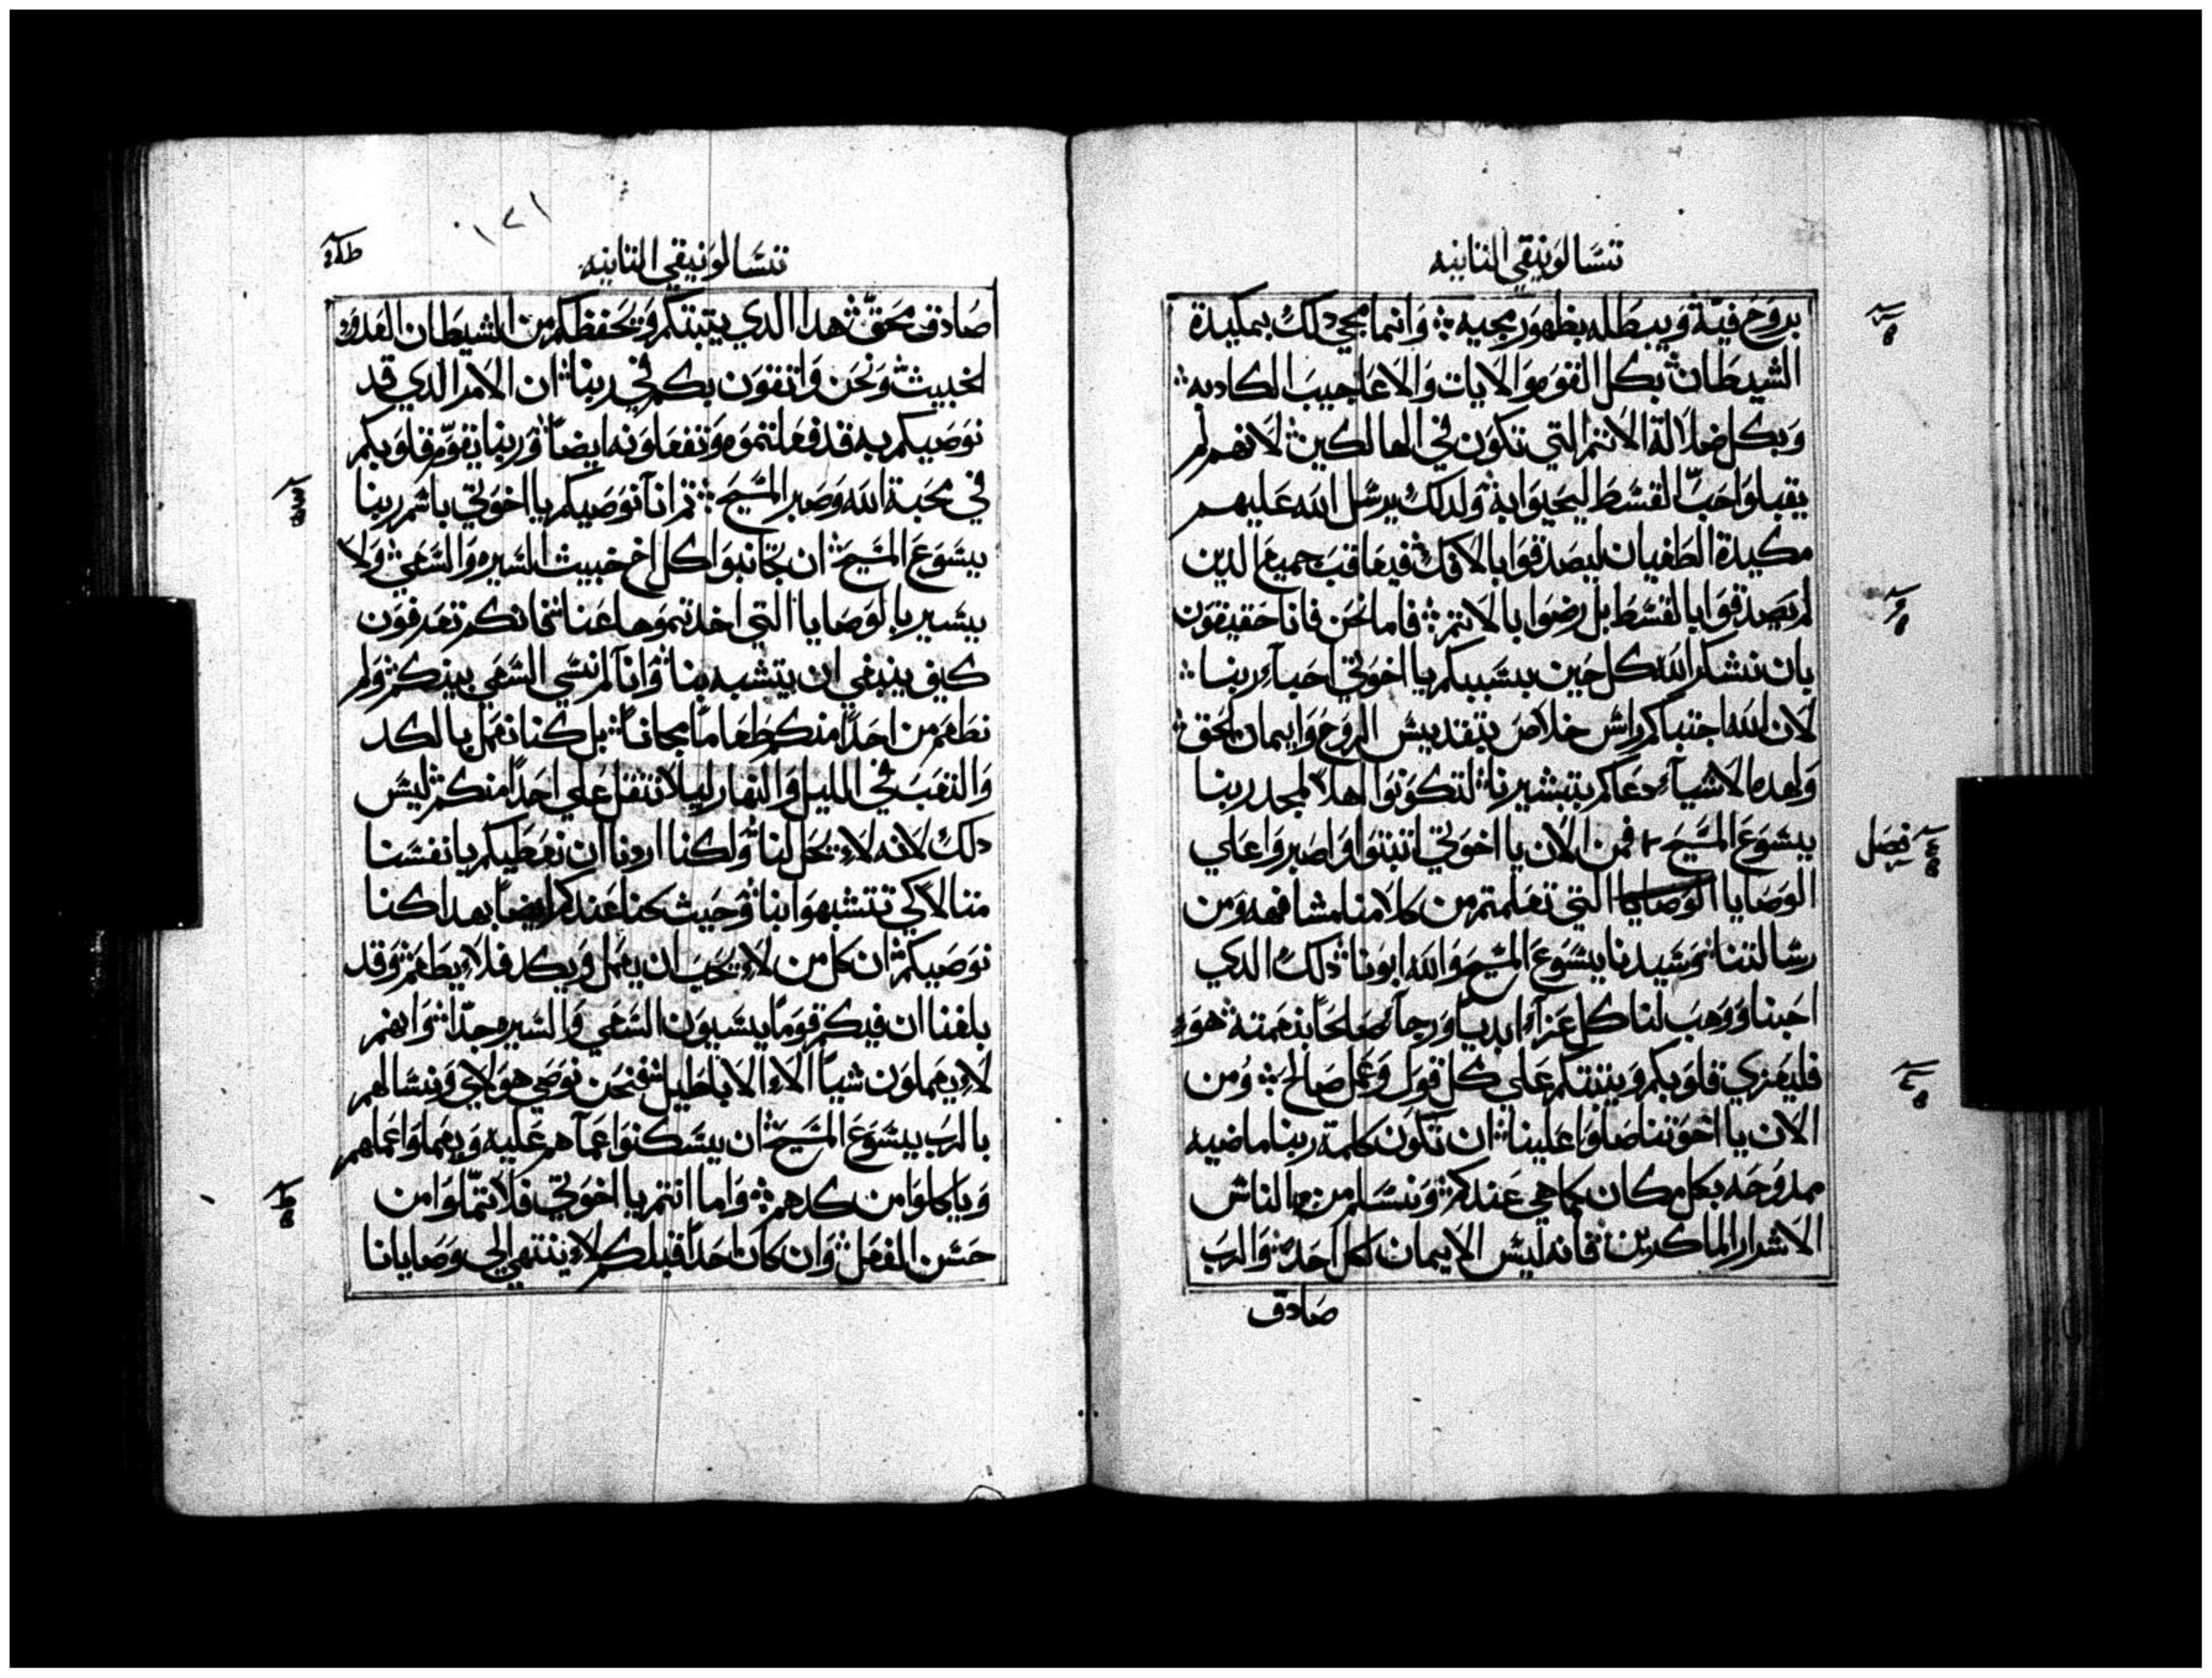 تسالونيقي الثانيه
بروح فيه ويبطله بظهور مجيه وانما مجي دلك بمكيدة
الشيطان بكل القوه والايات والاعاجيب الكادبه
وبكل ضلالة الاثم التي تكون في الهالكين لانهم لم
يقبلوا حب القسط ليحيوا به ولدلك يرسل الله عليهم
مكيدة الطغيان ليصدقوا بالافك فيعاقب جميع الدين
لم يصدقوا بالقسط بل رضوا بالاثم فاما نحن فانا حقيقون
بان نشكر الله كل حين بسببكم يا اخوتي احباء ربنا
لان الله اجتباكم راس خلاص بتقديس الروح وايمان الحق
ولهده الاشياء دعاكم بتبشيرنا لتكونوا اهلا لمجد ربنا
يسوع المسيح فمن الان يا اخوتي اتبتوا واصبروا علي
فصل
الوصايا الوصايا التي تعلمتم من كلامنا مشافهه ومن
رسالتنا وسيدنا يسوع المسيح والله ابونا دلك الدي
احبنا ووهب لنا كل عزاء ابديا ورجاء صالحا بنعمته هو
فليعزي قلوبكم ويثبتكم علي كل قول وعمل صالح ومن
الان يا اخوتنا صلوا علينا ان تكون كلمة ربنا ماضيه
ممدوحه بكل مكان كما هي عندكم ونسلم من الناس
الاشرار الماكرين فانه ليس الايمان لكل احد والرب
صادق
١٧١
تسالونيقي الثانيه
صادق محق هدا الدي يتبتكم ويحفظكم من الشيطان العدو
الخبيث ونحن واثقون بكم في ربنا ان الامر الدي قد
نوصيكم به قد فعلتموه وتفعلونه ايضا وربنا يقوم قلوبكم
في محبة الله وصبر المسيح ثم انا نوصيكم يا اخوتي باسم ربنا
يسوع المسيح ان تجانبوا كل اخ خبيث السيره والسعي ولا
يسير بالوصايا التي اخدتموها عنا فانكم تعرفون
كيف ينبغي ان يتشبه بنا وانا لم نسي السعي بينكم ولم
نطعم من احدا منكم طعاما مجانا بل كنا نعمل بالكد
والتعب في الليل والنهار ليلا نتقل علي احدا منكم ليس
دلك لانه لا يحل لنا ولكنا اردنا ان نعطيكم بانفسنا
مثالا كي تتشبهوا بنا وحيث كنا عندكم ايضا بهدا كنا
نوصيكم ان كل من لا يحب ان يعمل ويكد فلا يطعم وقد
بلغنا ان فيكم قوما يسيون السعي والسيره جدا وانهم
لا يعملون شيا الا الاباطيل فنحن نوصي هولاي ونسالهم
بالرب يسوع المسيح ان يسكنوا عما هم عليه ويعملوا عملهم
وياكلوا من كدهم واما انتم يا اخوتي فلا تملوا من
حسن الفعل وان كان احدا قبلكم لا ينتهي الي وصايانا